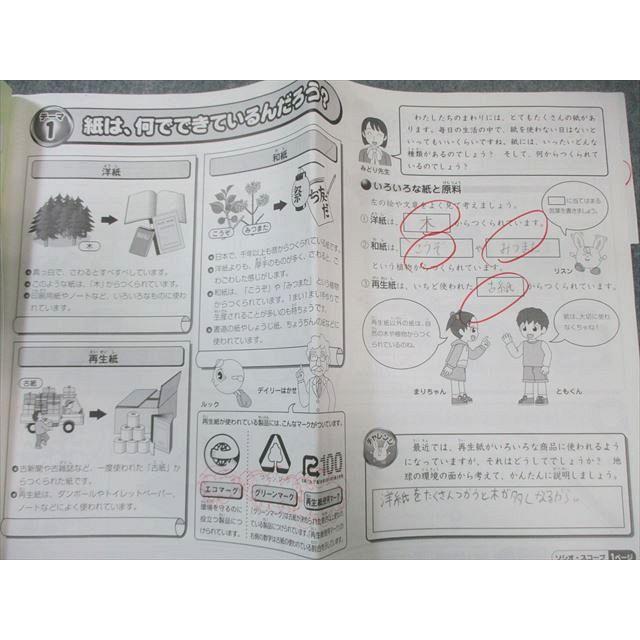 テーマ
1
紙は、何でできているんだろう?
洋紙
木
●真っ白で、さわるとすべすべしています。
●このような紙は、「木」からつくられています。
●印刷用紙やノートなど、いろいろなものに使われています。
再生紙
古紙
●古新聞や古雑誌など、一度使われた「古紙」から
つくられた紙です。
●再生紙は、ダンボールやトイレットペーパー、
ノートなどによく使われています。
和紙
こうぞ
みつまた
祭
●日本で、千年以上も昔からつくられている紙です。
●洋紙よりも、厚手のものが多く、さわると、ご
わごわした感じがします。
●和紙は、「こうぞ」や「みつまた」という植物
からつくられています。1まい1まい手作りで
生産されることが多いのも特ちょうです。
●書道の紙やしょうじ紙、ちょうちんの紙などに
使われています。
ルック
デイリーはかせ
再生紙が使われている製品には、こんなマークがついています。
エコマーク
環境を守るのに
役立つ製品につ
けられています。
グリーンマーク
R100
再生紙使用マーク
わたしたちのまわりには、とてもたくさんの紙があ
ります。毎日の生活の中で、紙を使わない日はないと
いってもいいくらいですね。紙には、いったいどんな
種類があるのでしょう? そして、何からつくられて
いるのでしょう?
みどり先生
●いろいろな紙と原料
左の絵や文章をよく見て考えましょう。
□に当てはまる
言葉を書きましょう。
①洋紙は、 木 からつくられています。
②和紙は、 こうぞ や みつまた
という植物からつくられています。
リスン
③再生紙は、いちど使われた 古紙 からつくられています。
再生紙以外の紙は、自
然の木や植物からつく
られているのね。
紙は、大切に使わ
なくちゃね!
まりちゃん
ともくん
チャレンジ
最近では、再生紙がいろいろな商品に使われるよう
になっていますが、それはどうしてでしょうか? 地
球の環境の面から考えて、かんたんに説明しましょう。
洋紙をたくさんつかうと木が
ソシオ・スコープ 1ページ